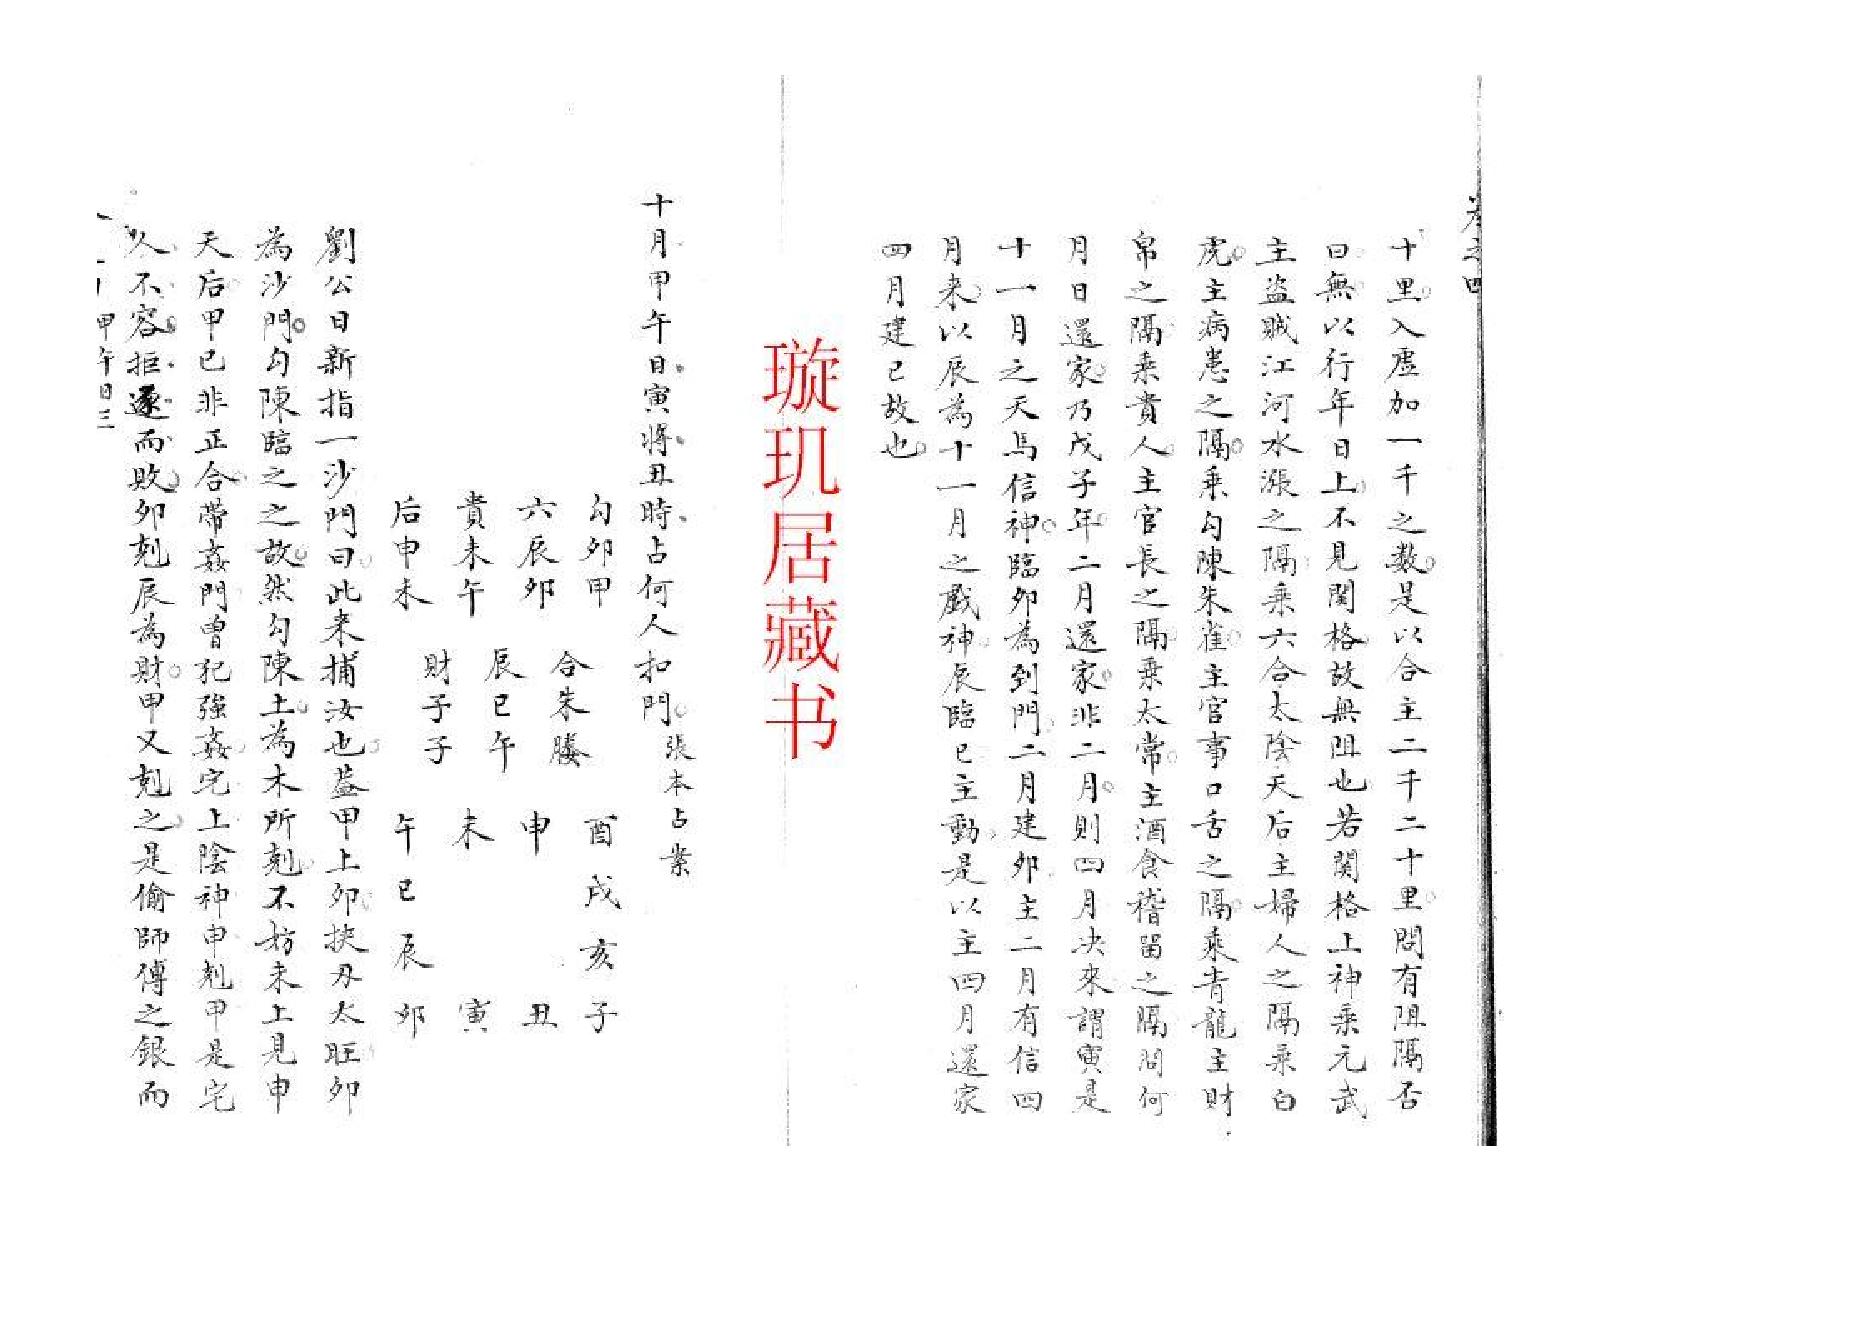 卷之四
十里入虛加一千之數是以合主二千二十里問有阻隔否
曰無以行年日上不見関格故無阻也若関格上神乘元武
主盗賊江河水漲之隔乘六合太陰天后主婦人之隔乘白
虎主病患之隔乘勾陳朱雀主官事口舌之隔乘青龍主財
帛之隔乘貴人主官長之隔乘太常主酒食稽留之隔問何
月日還家乃戊子年二月還家非二月則四月决來謂寅是
十一月之天馬信神臨卯為到門二月建卯主二月有信四
月来以辰為十一月之戲神辰臨巳主動是以主四月還家
四月建巳故也
璇玑居藏书
十月甲午日寅將丑時占何人扣門 張本占案
勾卯甲 合朱螣 酉戌亥子
六辰卯 辰巳午 申 丑
貴未午 財子子 未 寅
后申未 午巳辰卯
劉公日新指一沙門曰此来捕汝也蓋甲上卯挾刃太旺卯
為沙門勾陳臨之之故然勾陳土為木所剋不妨未上見申
天后甲已非正合帶姦門曾犯強姦宅上陰神申剋甲是宅
人不容拒逐而敗卯剋辰為財甲又剋之是偷師傅之銀而
甲午日三